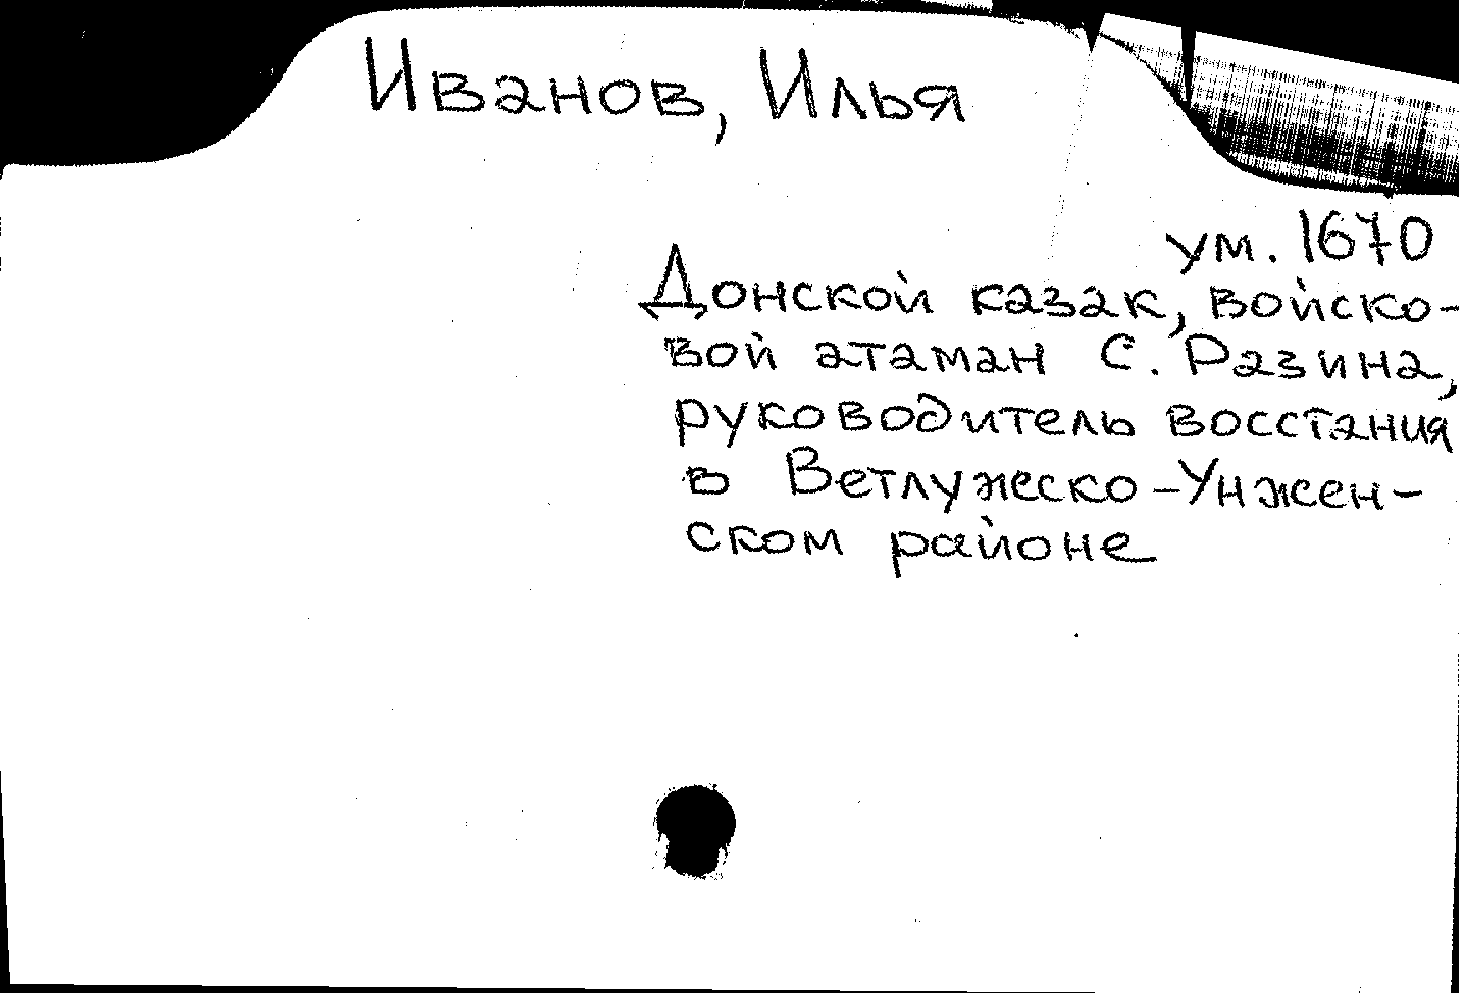 Иванов, Илья
ум. 1670
Донской казак, войско-
вой атаман С. Разина,
руководитель восстания
в Ветлужеско-Унжен-
ском районе